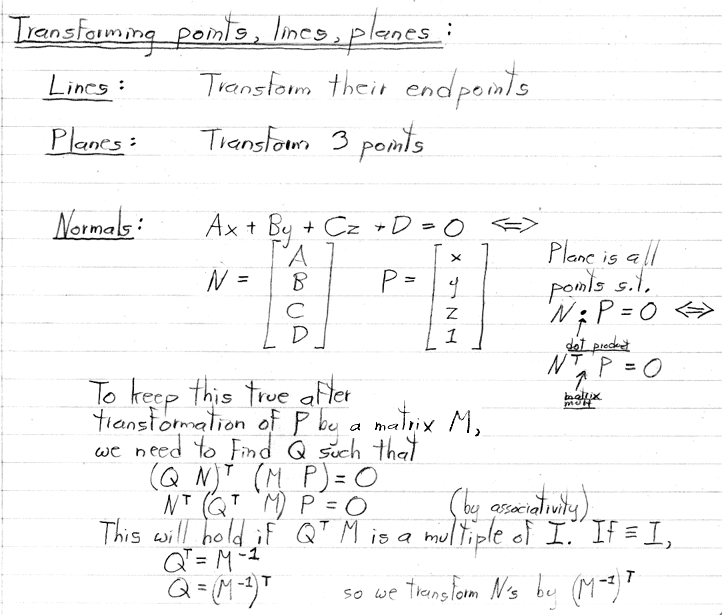 Transforming points, lines, planes :
Lines : Transform their endpoints
Planes : Transform 3 points
Normals : Ax + By + Cz + D = 0 <=>
N = [A B C D] P = [x y z 1]
Plane is all
points s.t.
N • P = 0 <=>
dot product
Nᵀ P = 0
matrix mult
To keep this true after
transformation of P by a matrix M,
we need to find Q such that
(Q N)ᵀ (M P) = 0
Nᵀ (Qᵀ M) P = 0 (by associativity)
This will hold if Qᵀ M is a multiple of I. If ≡ I,
Qᵀ = M⁻¹
Q = (M⁻¹)ᵀ so we transform N's by (M⁻¹)ᵀ